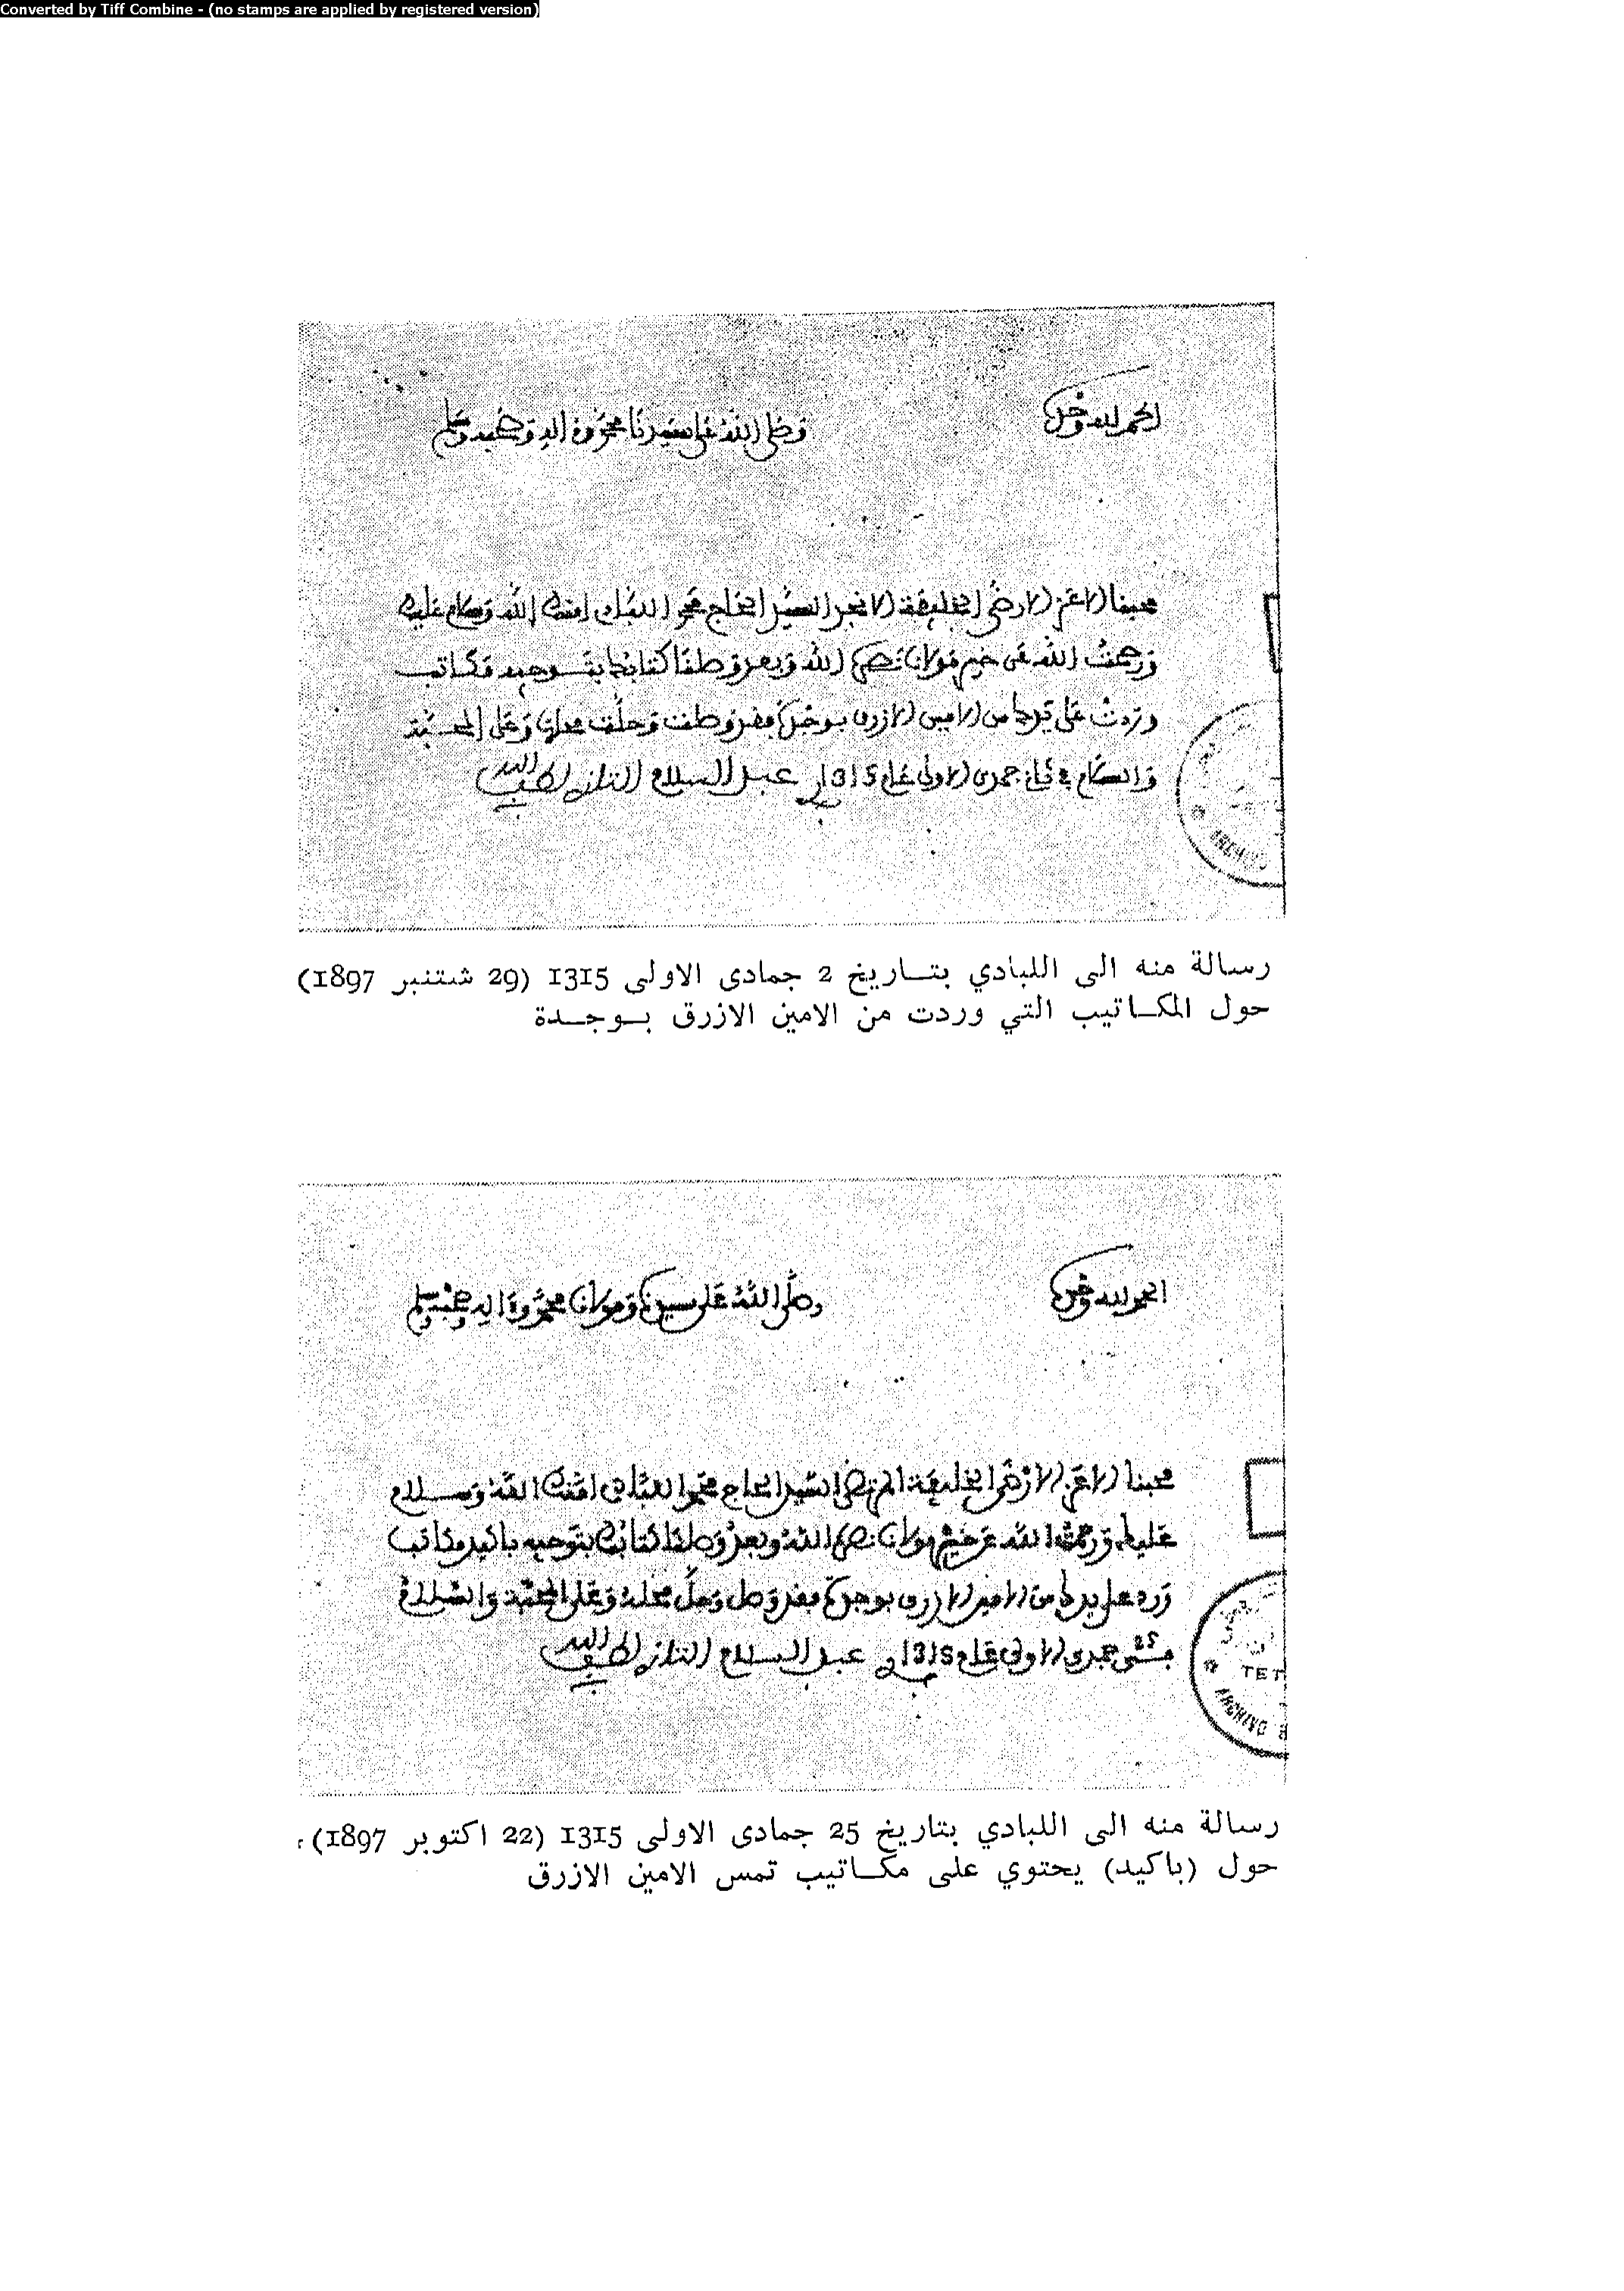 Converted by Tiff Combine - (no stamps are applied by registered version)
الحمد لله وحده
وصلى الله على سيدنا محمد وءاله وصحبه وسلم
محبنا الاعز الارضى الخليفة الانجد السيد الحاج محمد اللبادي امنك الله وسلام عليك
ورحمت الله عن خير مولانا نصره الله وبعد وصلنا كتابك بتوجيه مكاتب
وردت على يدك من الامين الازرق بوجدة فقد وصلت وحلت محلها وعلى المحبة
والسلام في جمدى الاولى عام 1315 عبد السلام التازي لطف الله به
ARCHIVO
رسالة منه الى اللبادي بتــاريخ 2 جمادى الاولى 1315 (29 شتنبر 1897)
حول المكــاتيب التي وردت من الامين الازرق بــوجــدة
الحمد لله وحده
وصلى الله على سيدنا ومولانا محمد وءاله وصحبه وسلم
محبنا الاعز الارضى الخليفة المرتضى السيد الحاج محمد اللبادي امنك الله وســلام
عليك ورحمت الله عن خير مولانا نصره الله وبعد وصلنا كتابك بتوجيه باكيد مكاتب
ورد على يدك من الامين الازرق بوجدة فقد وصل وحل محله وعلى المحبة والسلام
25 جمدى الاولى عام 1315 عبد السلام التازي لطف الله به
TET
ARCHIVO
رسالة منه الى اللبادي بتاريخ 25 جمادى الاولى 1315 (22 اكتوبر 1897)،
حول (باكيد) يحتوي على مكــاتيب تمس الامين الازرق